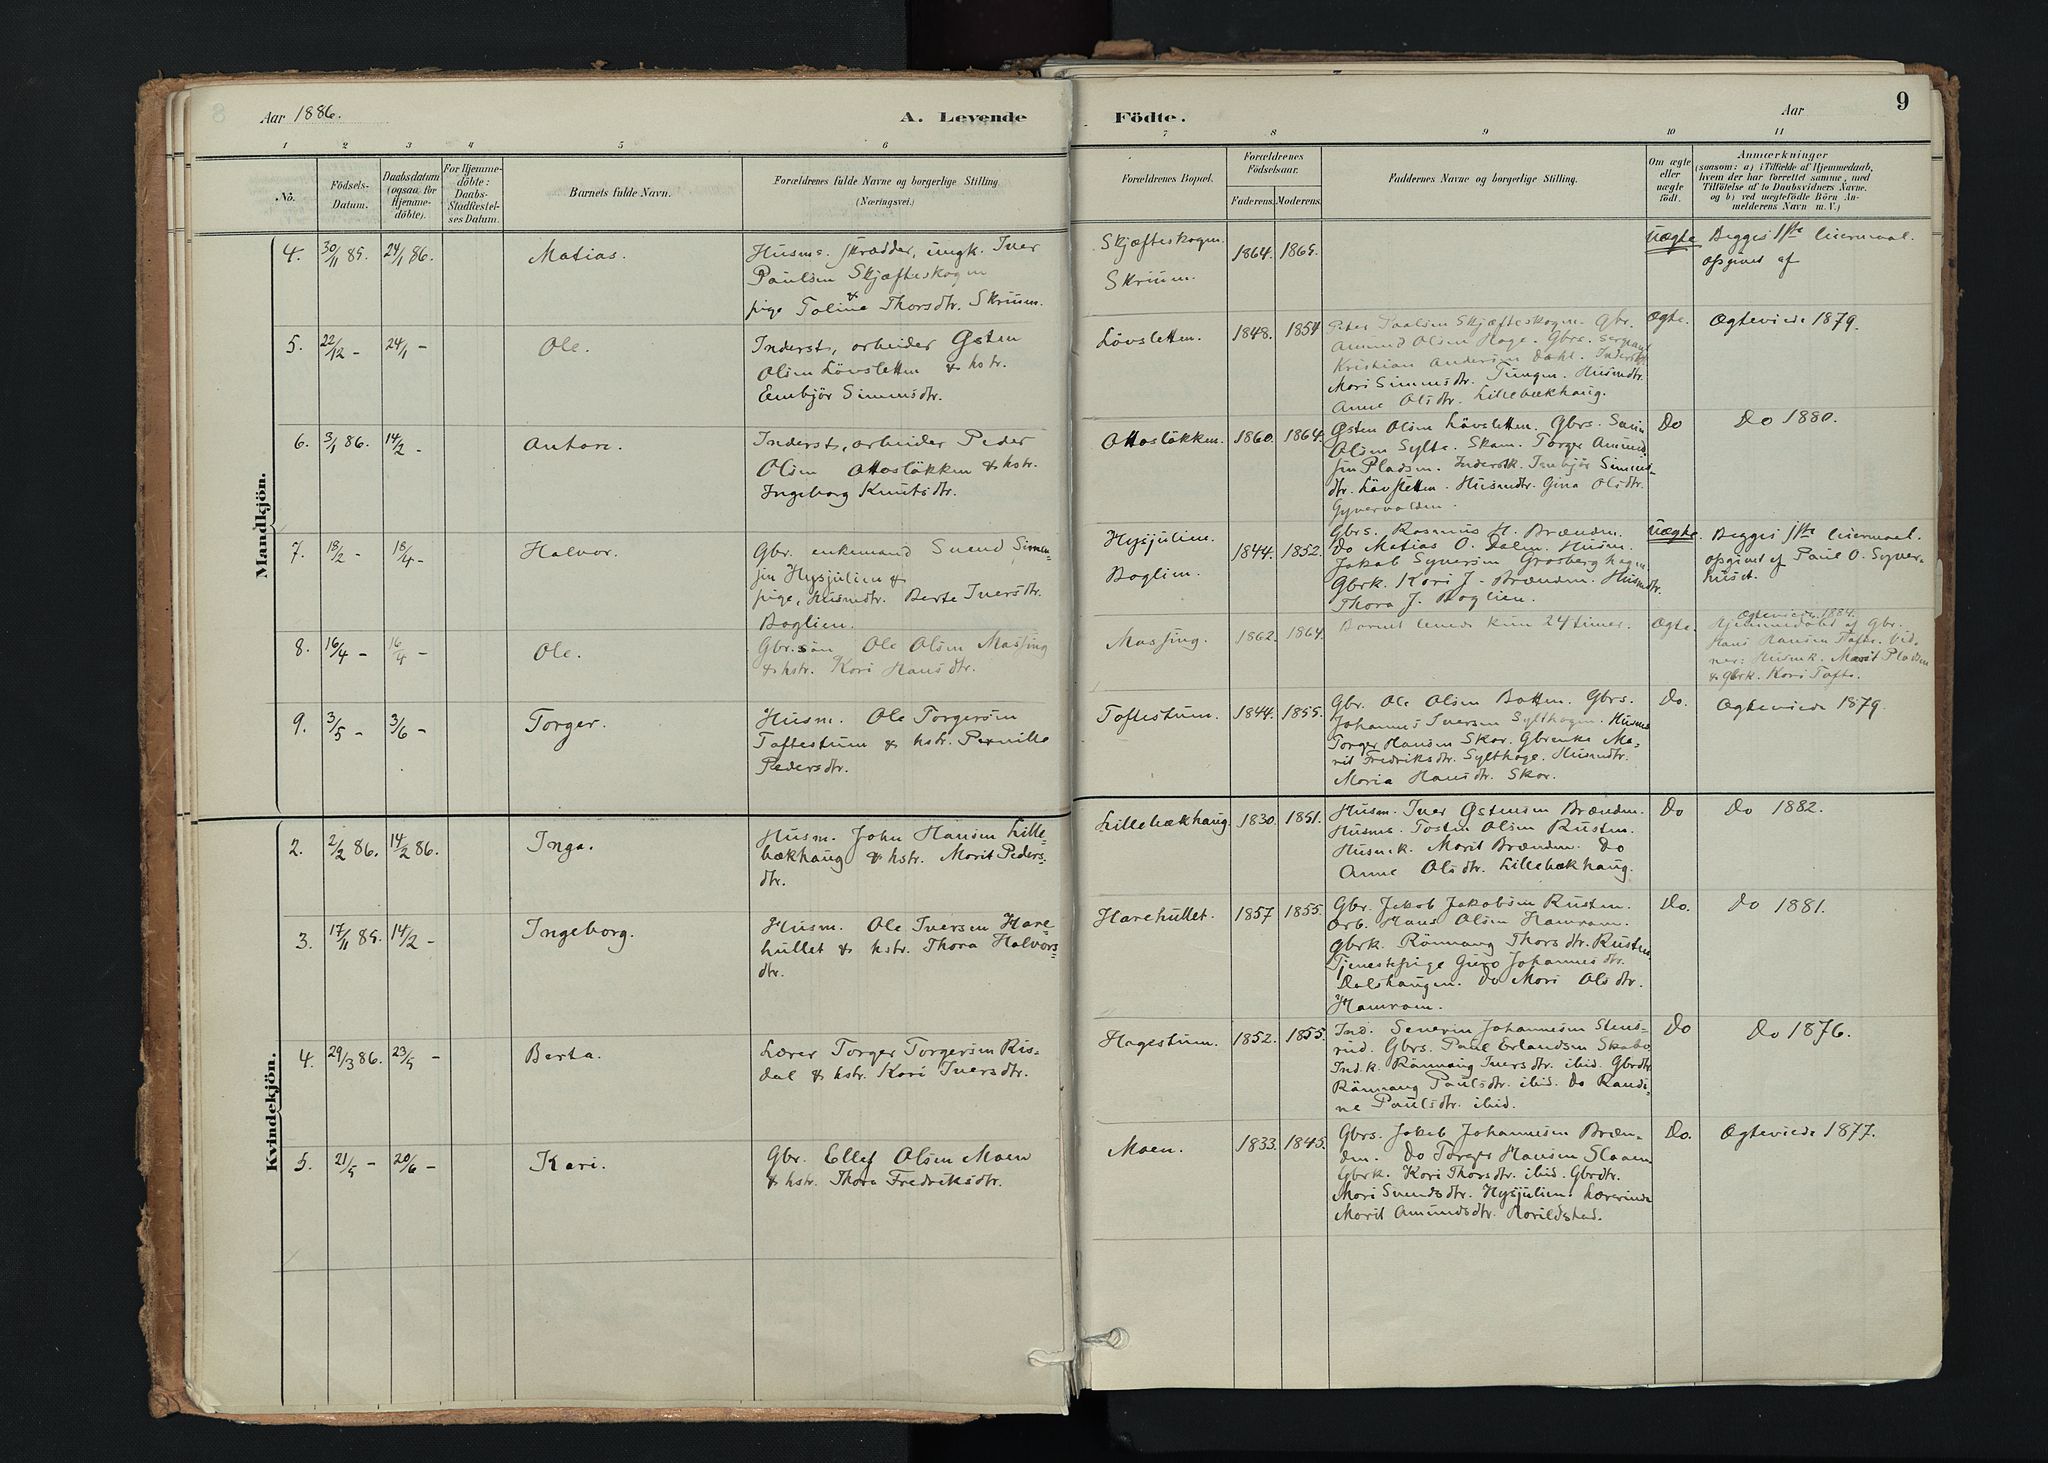 Aar 1886.
A. Levende
Födte.
Aar
9
1
2
3
4
5
6
7
8
9
10
11
No.
Födsels-
Datum.
Daabsdatum
(ogsaa for
Hjemme-
döbte).
For Hjemme-
döbte:
Daabs-
Stadfæstel-
ses Datum.
Barnets fulde Navn.
Forældrenes fulde Navne og borgerlige Stilling
(Næringsvei.)
Forældrenes Bopæl.
Forældrenes
Födselsaar.
Faderens.
Moderens.
Faddernes Navne og borgerlige Stilling.
Om ægte
eller
uægte
födt.
Anmærkninger
(saasom: a) i Tilfælde af Hjemmedaab,
hvem der har forrettet samme, med
Tilföielse af to Daabsvidners Navne.
og b) ved uægtefödte Börn An-
melderens Navn m. V.)
Mandkjön.
4. 30/11 85. 24/1 86. Matias.
Husms. skrædder, ungk. Iver
Paulsen Skjæfteskogen
&
pige Toline Thorsdtr. Skrium.
Skjæfteskogen.
Skrium.
1864. 1865.
Uægte
Begges 1ste leiermaal.
opgivet af
5. 22/12 – 24/1 – Ole.
Inderst, arbeider Østen
Olsen Lövsletten & hstr.
Embjör Simensdtr.
Lövsletten. 1848. 1854
Peter Paalsen Skjæfteskogen. Gbr.
Amund Olsen Hage. Gbrs.
Kristian Andersen Dahl.
Mari Simensdtr. Tungen. Husmdtr.
Anne Olsdtr. Lillebækhaug.
Ægte. Ægteviede 1879.
6. 3/1 86. 14/2 – Antore.
Inderst, arbeider Peder
Olsen Ottoslökken & hstr.
Ingeborg Knutsdtr.
Ottoslökken. 1860. 1864.
Østen Olsen Lövsletten. Gbrs.
Olsen Sylte. Skom. Torger Amund-
sen Pladsen. Inderstk. Simens-
dtr. Lövsletten. Husmdtr. Gina Olsdtr.
Do Do 1880.
7. 18/2 – 18/4 – Halvor.
Gbr. enkemand Svend Simen-
sen Hysjulien &
pige, Husmdtr. Berte Iversdtr.
Baglien.
Hysjulien.
Baglien.
1844. 1852.
Gbrs. Rasmus H. Brænden.
Do Matias O. Dalen. Husm.
Jakob Syversen Grosberghagen
Gbrk. Kari J. Brænden. Husmdtr.
Thora J. Baglien.
Uægte. Begges 1ste leiermaal.
opgivet af Paul O. Syver-
huset.
8. 16/4 – 16/4 – Ole.
Gbr.sön Ole Olsen Massing
& hstr. Kari Hansdtr.
Massing. 1862. 1864.
Barnet levede kun 24 timer.
Ægte.
Ægteviede 1884.
Hjemmedöbt af Gbr.
Hans Hansen Tofte. Vid-
ner: Husmk. Marit Pladsen
& Gbrk. Kari Tofte.
9. 3/5 – 3/6 – Torger.
Husm. Ole Torgersen
Toftestuen & hstr. Pernille
Pedersdtr.
Toftestuen. 1844. 1855.
Gbr. Ole Olsen Botten. Gbrs.
Johannes Iversen Sylthagen. Husms
Torger Hansen Skar. Gbrenke Ma-
rit Fredriksdtr. Sylthage. Husmdtr.
Maria Hansdtr. Skar.
Do. Ægteviede 1879.
Kvindekjön.
2. 2/2 86. 14/2 86. Inga.
Husm. John Hansen Lille-
bækhaug & hstr. Marit Peders-
dtr.
Lillebækhaug 1830. 1851.
Husm. Iver Østensen Brænden.
Husms. Tosten Olsen Rusten.
Husmk. Marit Brænden. Do
Anne Olsdtr. Lillebækhaug.
Do Do 1882.
3. 17/11 85. 14/2 – Ingeborg.
Husm. Ole Iversen Hare-
hullet & hstr. Thora Halvors-
dtr.
Harehullet. 1857 1855.
Gbr. Jakob Jakobsen Rusten.
Arb. Hans Olsen Hamram.
Gbrk. Rönnaug Thorsdtr. Rusten
Tjenestepige Guro Johannesdtr.
Dalshaugen. Do Mari Olsdtr.
Hamram.
Do. Do 1881.
4. 29/3 86. 23/5 – Berta.
Lærer Torger Torgersen Ris-
dal & hstr. Kari Iversdtr.
Hagestuen. 1852. 1855.
Ind. Severin Johannesen Stens-
rud. Gbrs. Paul Erlandsen Skabo.
Ind.k. Rönnaug Iversdtr. ibid. Gbrdtr.
Rönnaug Paulsdtr. ibid. Do Randi-
ne Paulsdtr. ibid.
Do Do 1876.
5. 21/5 – 20/6 – Kari.
Gbr. Ellef Olsen Moen
& hstr. Thora Fredriksdtr.
Moen. 1833. 1845.
Gbrs. Jakob Johannesen Bræn-
den. Do Torger Hansen Slaaen
Gbrk. Kari Thorsdtr. ibid. Gbrdtr.
Mari Svendsdtr. Hysjulien. Lærerinde
Marit Amundsdtr. Horildstad.
Do. Ægteviede 1877.